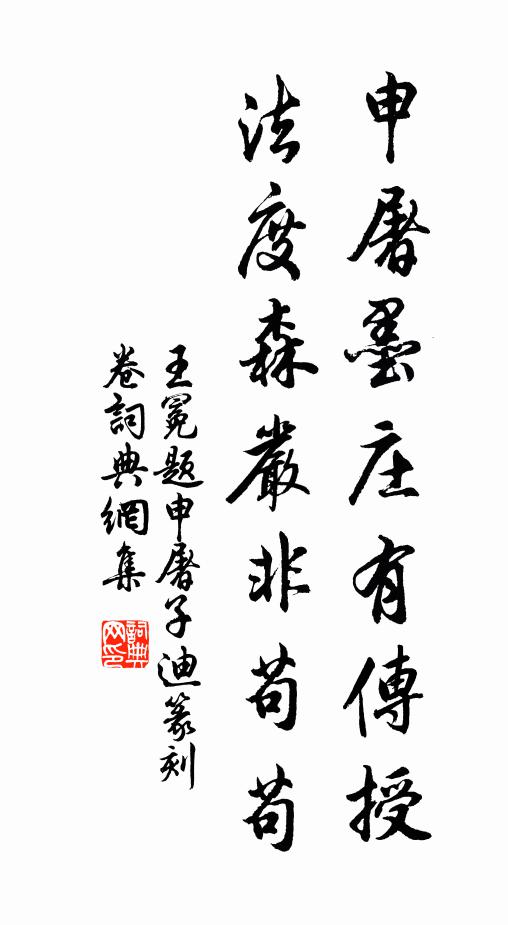 申屠墨庄有傳授
法度森嚴非苟苟
王冕题申屠子迪篆刻
卷詞典網集
詞典
网印